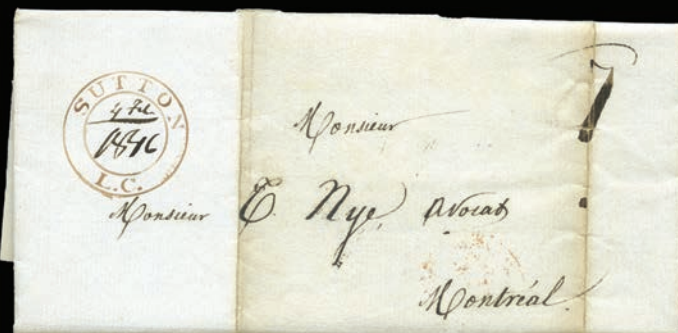 SUTTON
4 Feb
1846
L.C.
Monsieur
Monsieur E. Nye, Avocat
Montréal.
7